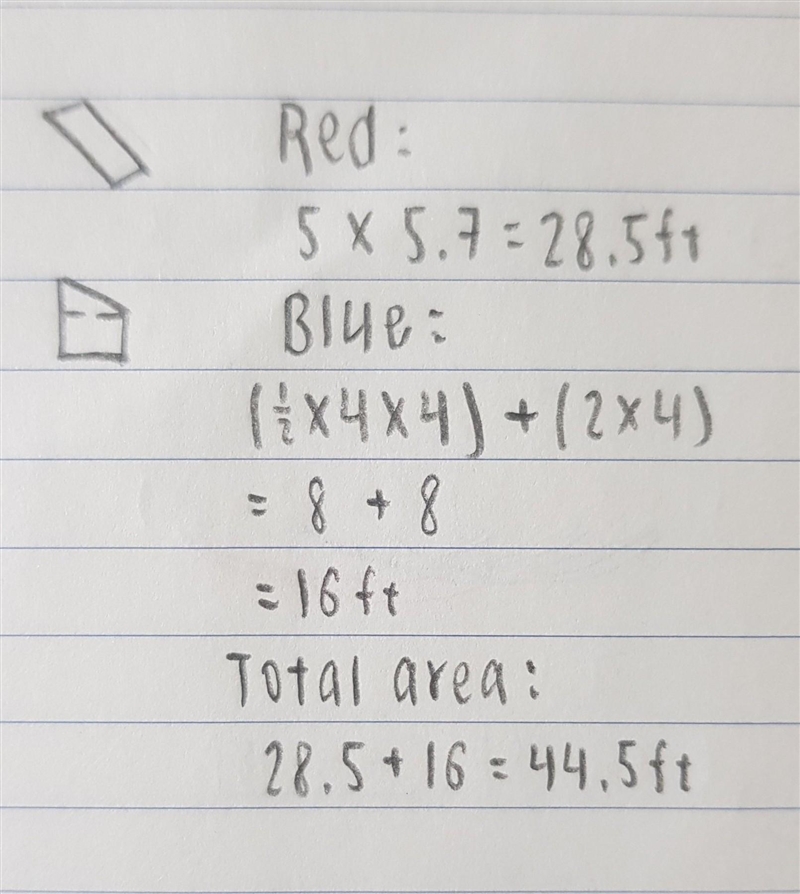 Red:
5 × 5.7 = 28.5ft
Blue:
(½×4×4) + (2×4)
= 8 + 8
= 16 ft
Total area:
28.5 + 16 = 44.5ft